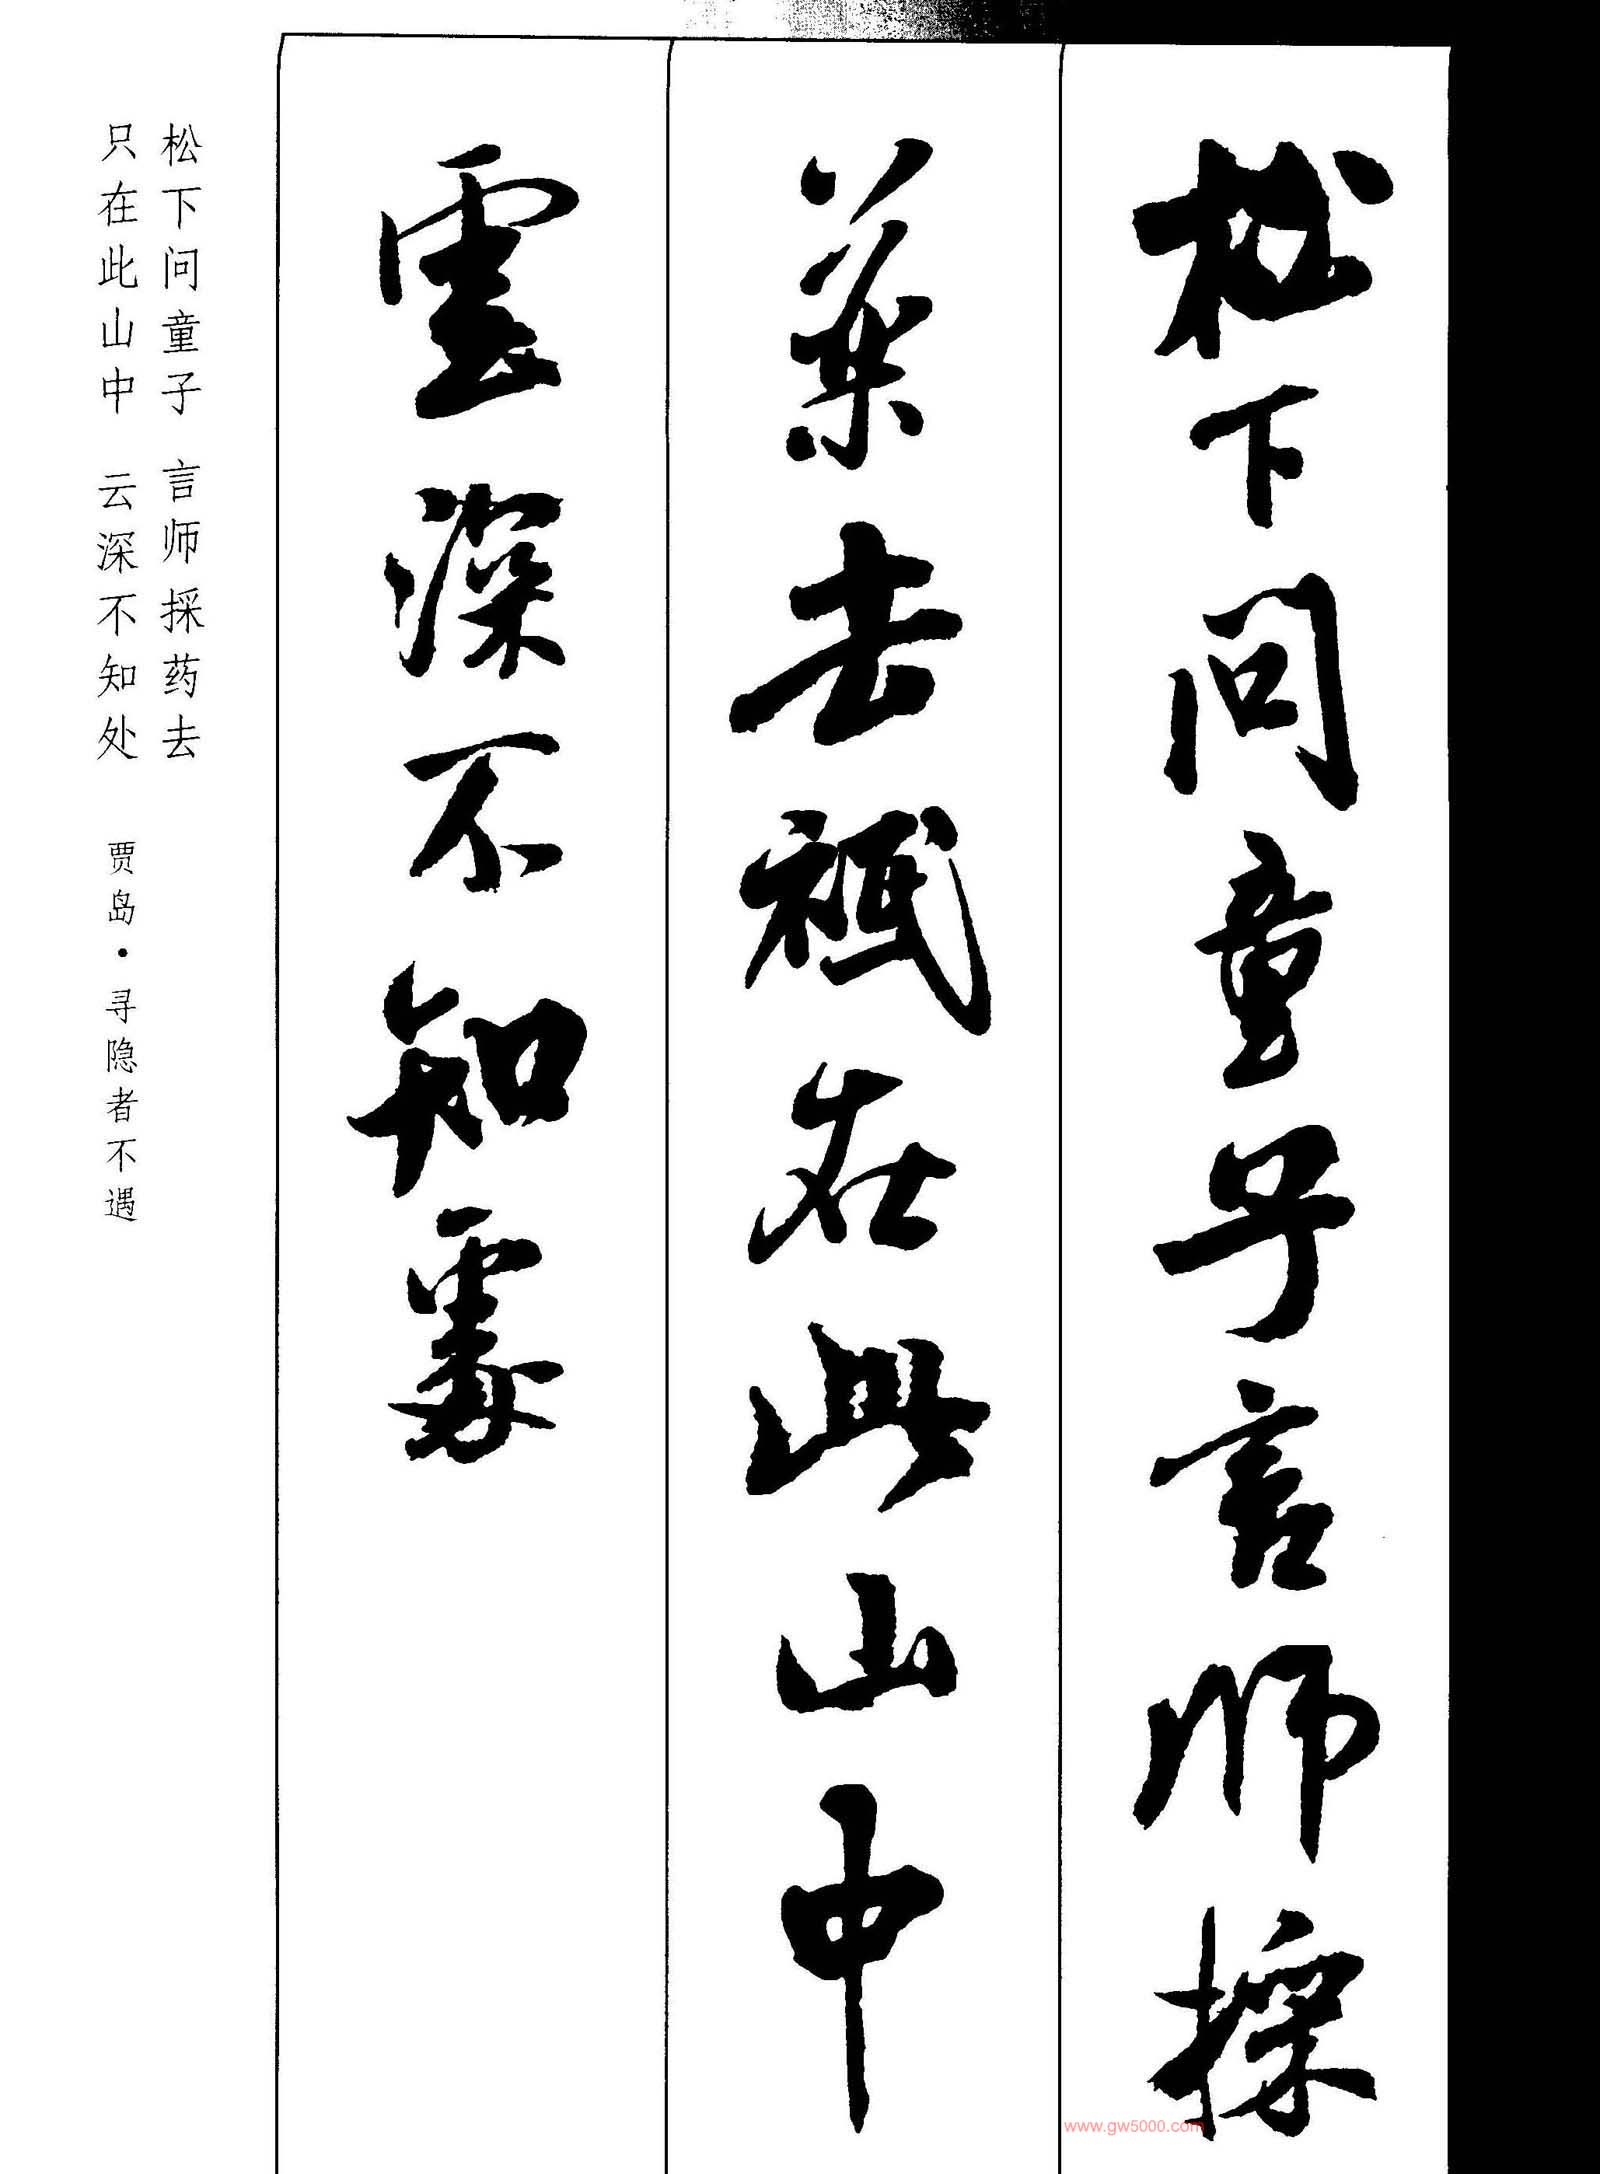 松下问童子言师採
药去祇在此山中
雲深不知處
松下问童子 言师採药去
只在此山中 云深不知处 贾岛·寻隐者不遇
www.gw5000.com